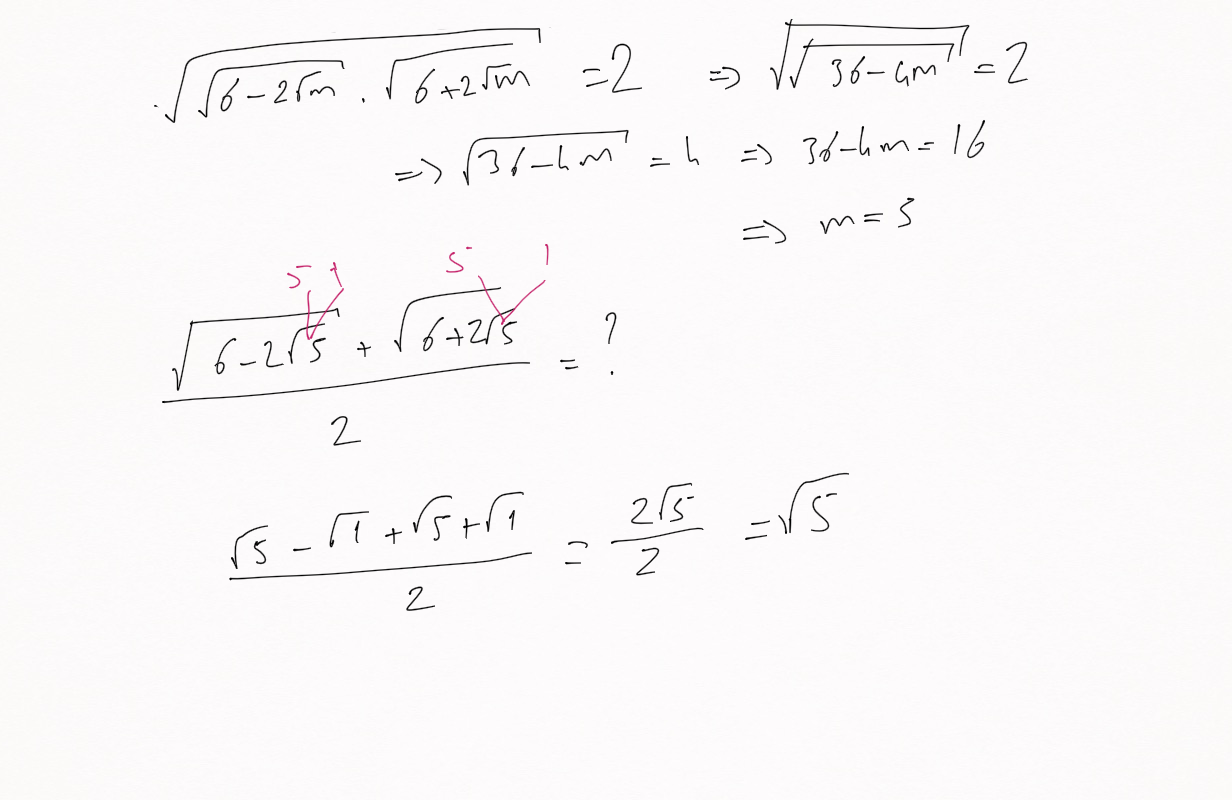 √(√(6-2√m) . √(6+2√m)) = 2 ⇒ √(√(36-4m)) = 2
⇒ √(36-4m) = 4 ⇒ 36-4m = 16
⇒ m = 5
5 1 5 1
(√(6-2√5) + √(6+2√5)) / 2 = ?
(√5 - √1 + √5 + √1) / 2 = 2√5 / 2 = √5